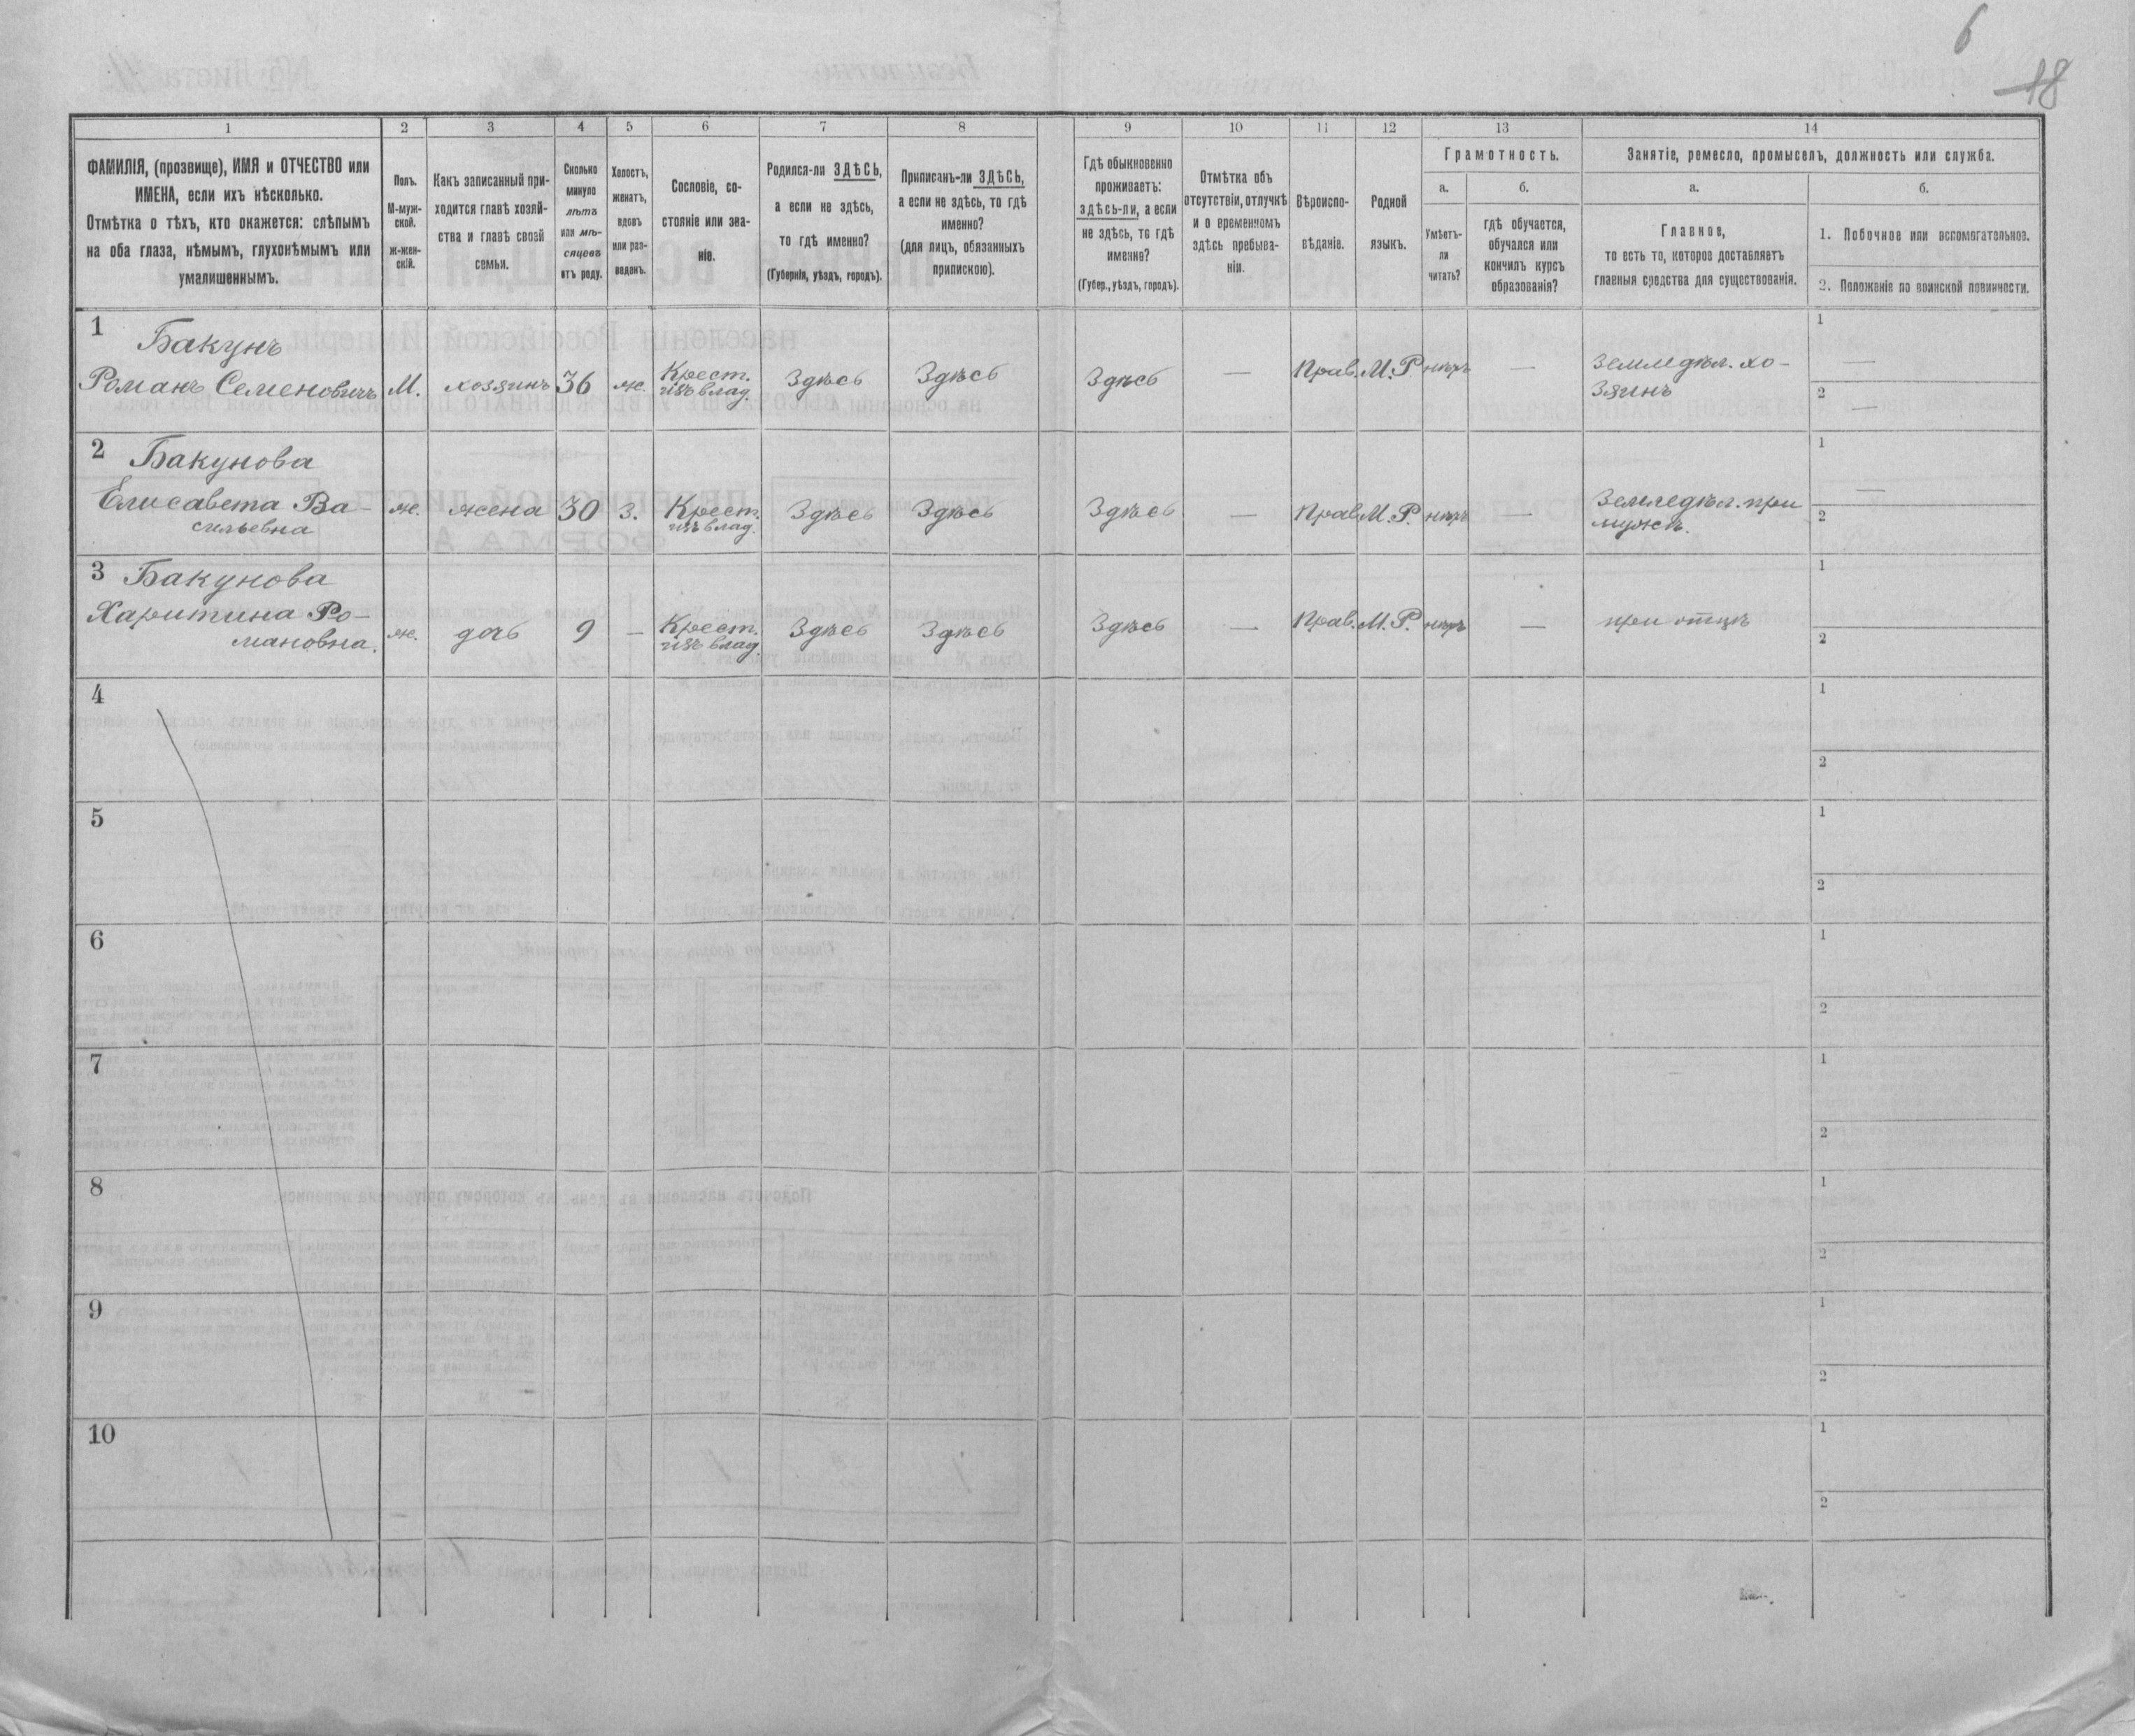 6
18
1
2
3
4
5
6
7
8
9
10
11
12
13
14
ФАМИЛІЯ, (прозвище), ИМЯ и ОТЧЕСТВО или
ИМЕНА, если ихъ нѣсколько.
Отмѣтка о тѣхъ, кто окажется: слѣпымъ
на оба глаза, нѣмымъ, глухонѣмымъ или
умалишеннымъ.
Полъ.
М-муж-
ской.
ж-жен-
скій.
Какъ записанный при-
ходится главѣ хозяй-
ства и главѣ своей
семьи.
Сколько
минуло
лѣтъ
или мѣ-
сяцевъ
отъ роду.
Холостъ,
женатъ,
вдовъ
или раз-
веденъ.
Сословіе, со-
стояніе или зва-
ніе.
Родился-ли ЗДѢСЬ,
а если не здѣсь,
то гдѣ именно?
(Губернія, уѣздъ, городъ).
Приписанъ-ли ЗДѢСЬ,
а если не здѣсь, то гдѣ
именно?
(для лицъ, обязанныхъ
припискою).
Гдѣ обыкновенно
проживаетъ:
здѣсь-ли, а если
не здѣсь, то гдѣ
именно?
(Губер., уѣздъ, городъ).
Отмѣтка объ
отсутствіи, отлучкѣ
и о временномъ
здѣсь пребыва-
ніи.
Вѣроиспо-
вѣданіе.
Родной
языкъ.
Грамотность.
а.
Умѣетъ-
ли
читать?
б.
гдѣ обучается,
обучался или
кончилъ курсъ
образованія?
Занятіе, ремесло, промыселъ, должность или служба.
а.
Главное,
то есть то, которое доставляетъ
главныя средства для существованія.
б.
1. Побочное или вспомогательное.
2. Положеніе по воинской повинности.
1
Бакунъ
Романъ Семеновичъ
М.
хозяинъ
36
ж.
Крест.
изъ влад.
Здѣсь
Здѣсь
Здѣсь
—
Прав.
М.Р.
нѣтъ
—
Земледѣл. хо-
зяинъ
1
—
2
—
2
Бакунова
Елисавета Ва-
сильевна
ж.
жена
30
З.
Крест.
изъ влад.
Здѣсь
Здѣсь
Здѣсь
—
Прав.
М.Р.
нѣтъ
—
Земледѣл. при
мужѣ.
1
—
2
3
Бакунова
Харитина Ро-
мановна.
ж.
дочь
9
—
Крест.
изъ влад.
Здѣсь
Здѣсь
Здѣсь
—
Прав.
М.Р.
нѣтъ
—
при отцѣ
1
2
4
1
2
5
1
2
6
1
2
7
1
2
8
1
2
9
1
2
10
1
2